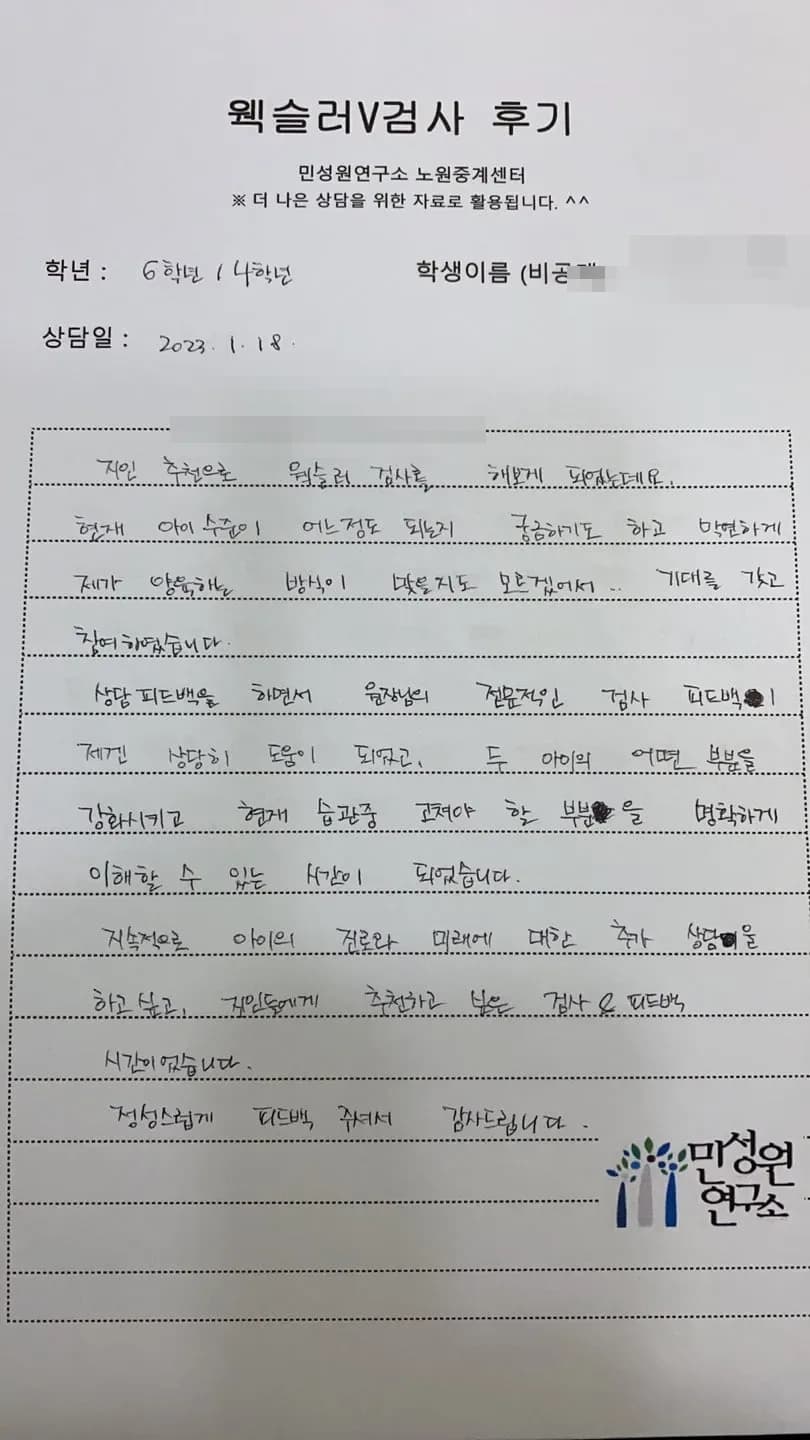 웩슬러V검사 후기
민성원연구소 노원중계센터
※ 더 나은 상담을 위한 자료로 활용됩니다. ^^
학년 : 6학년 / 4학년 학생이름 (비공개
상담일 : 2023. 1. 18.
지인 추천으로 웩슬러 검사를 해보게 되었는데요.
현재 아이 수준이 어느정도 되는지 궁금하기도 하고 막연하게
제가 양육하는 방식이 맞을지도 모르겠어서.. 기대를 갖고
참여하였습니다.
상담 피드백을 하면서 원장님의 전문적인 검사 피드백이
제겐 상당히 도움이 되었고, 두 아이의 어떤 부분을
강화시키고 현재 습관중 고쳐야 할 부분을 명확하게
이해할 수 있는 시간이 되었습니다.
지속적으로 아이의 진로와 미래에 대한 추가 상담을
하고싶고, 지인들에게 추천하고 싶은 검사 & 피드백
시간이었습니다.
정성스럽게 피드백 주셔서 감사드립니다.
민성원
연구소